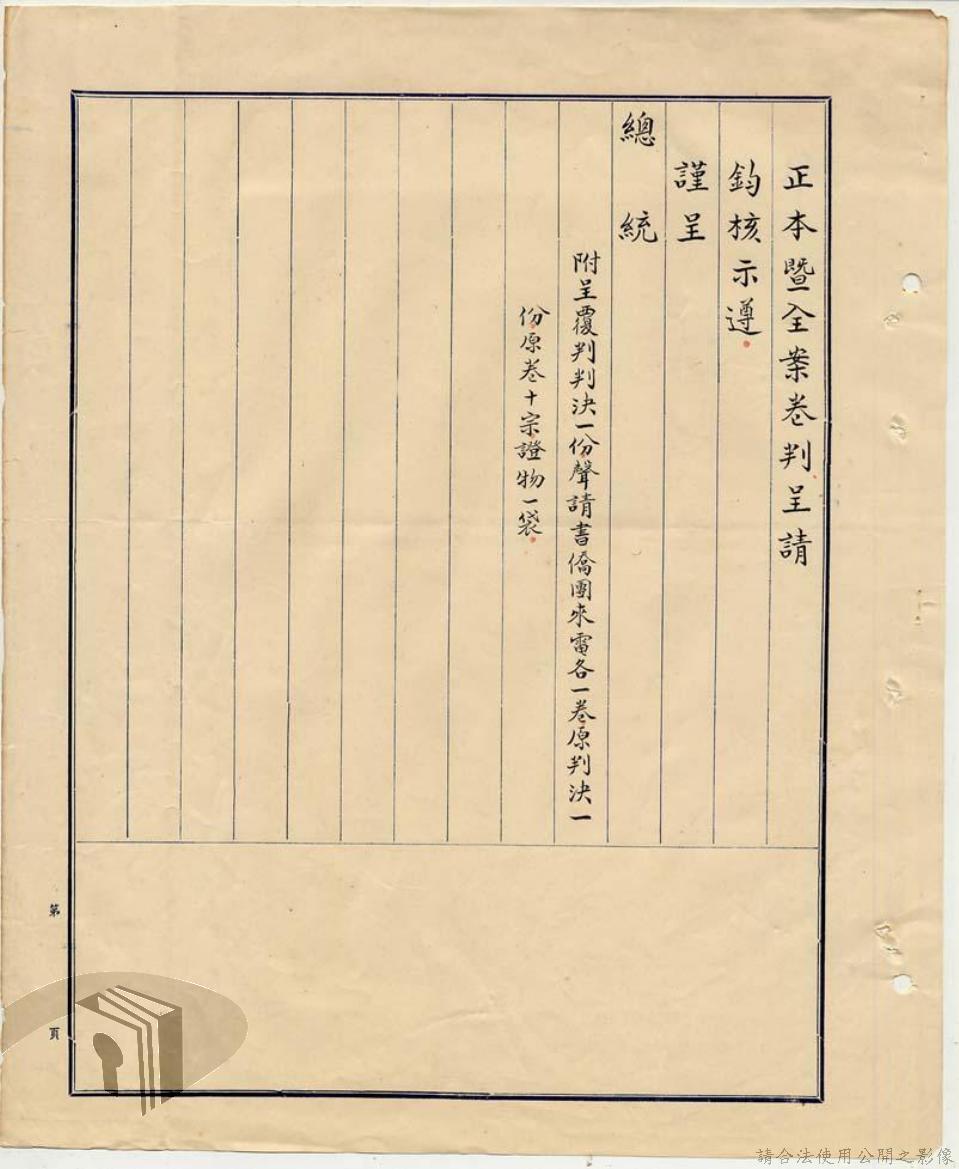 正本暨全案卷判呈請
鈞核示遵
謹呈
總統
附呈覆判判決一份聲請書僑團來電各一卷原判決一
份原卷十宗證物一袋
第 頁
請合法使用公開之影像